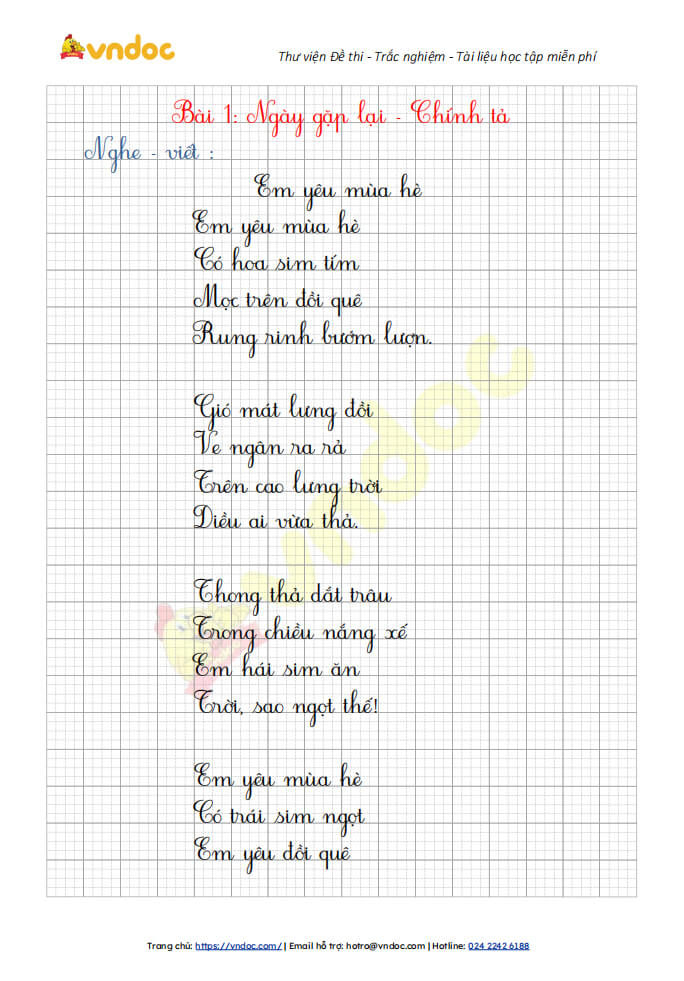 vndoc
Thư viện Đề thi - Trắc nghiệm - Tài liệu học tập miễn phí
Bài 1: Ngày gặp lại - Chính tả
Nghe - viết :
Em yêu mùa hè
Em yêu mùa hè
Có hoa sim tím
Mọc trên đồi quê
Rung rinh bướm lượn.
Gió mát lưng đồi
Ve ngân ra rả
Trên cao lưng trời
Diều ai vừa thả.
Thong thả dắt trâu
Trong chiều nắng xế
Em hái sim ăn
Trời, sao ngọt thế!
Em yêu mùa hè
Có trái sim ngọt
Em yêu đồi quê
vndoc
Trang chủ: https://vndoc.com/ | Email hỗ trợ: hotro@vndoc.com | Hotline: 024 2242 6188